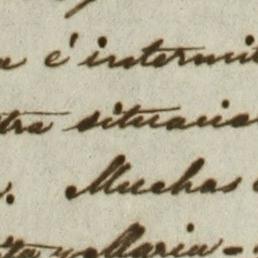 é intermit
tra situacio
. Muchas
ta y Maria -